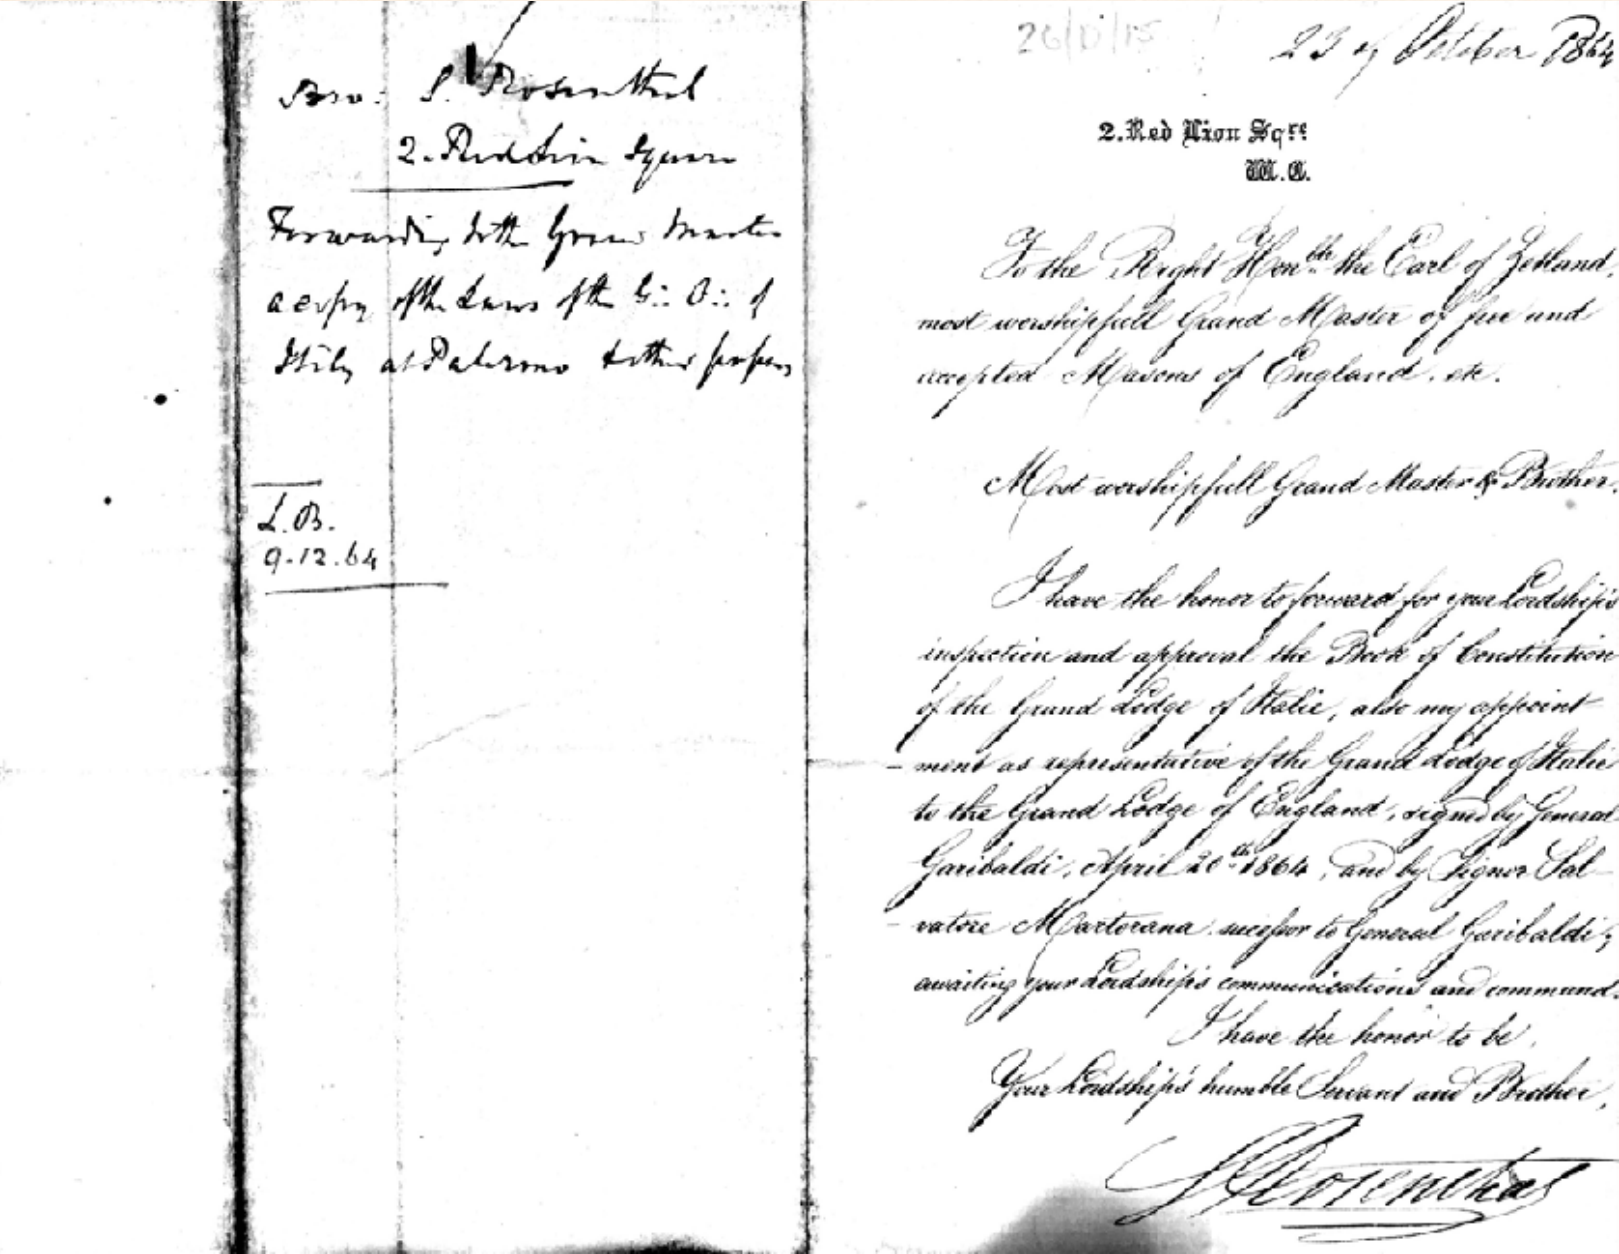 Bro: S. Rosenthal
2. Red Lion Square
Forwarding to the Grand Master
a copy of the Laws of the G∴ O∴ of
Italy at Palermo & other papers
L.B.
9.12.64
23 of October 1864
2. Red Lion Sqre
W.C.
To the Right Honble the Earl of Zetland,
most worshipfull Grand Master of free and
accepted Masons of England. etc.
Most worshipfull Grand Master & Brother.
I have the honor to forward for your Lordship's
inspection and approval the Book of Constitution
of the Grand Lodge of Italie, also my appoint
- ment as representative of the Grand Lodge of Italie
to the Grand Lodge of England, signed by General
Garibaldi, April 20th 1864, and by Signor Sal-
- vatore Martorana successor to General Garibaldi;
awaiting your Lordship's communications and command.
I have the honor to be,
Your Lordship's humble Servant and Brother,
S Rosenthal